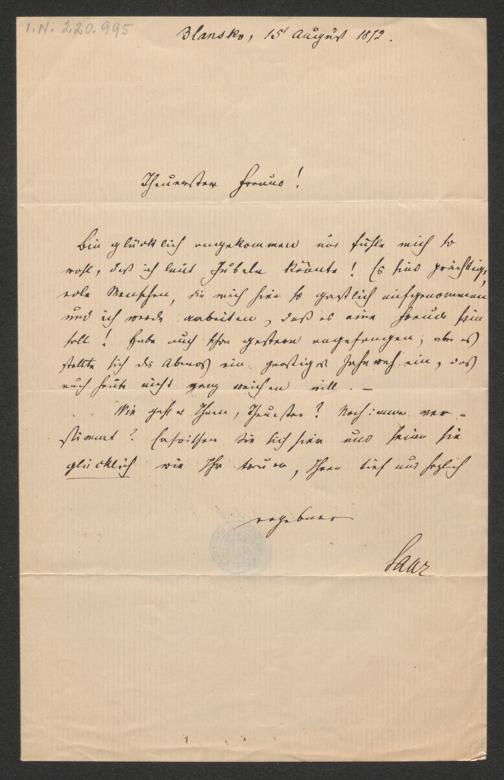 I.N. 220.995
Blansko, 15t August 1873.
Theuerster Freund!
Bin glücklich angekommen und fühle mich so
wohl, daß ich laut jubeln könnte! Es sind prächtige,
edle Menschen, die mich hier so gastlich aufgenommen
und ich werde arbeiten, daß es eine Freude sein
soll! Habe auch schon gestern angefangen; aber es
stellte sich des Abends ein garstiges Zahnweh ein, das
auch heute nicht ganz weichen will. —
Wie geht es Ihnen, Theuerster? Noch immer ver-
stimmt? Entreißen Sie sich Wien und seien Sie
glücklich wie Ihr treuer, Ihnen tief und herzlich
ergebener
Saar